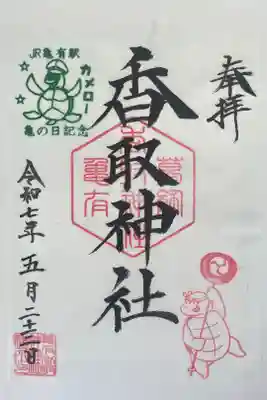 奉拝
香取神社
葛飾
亀有
JR亀有駅
カメロー
亀の日記念
令和七年五月二十三日